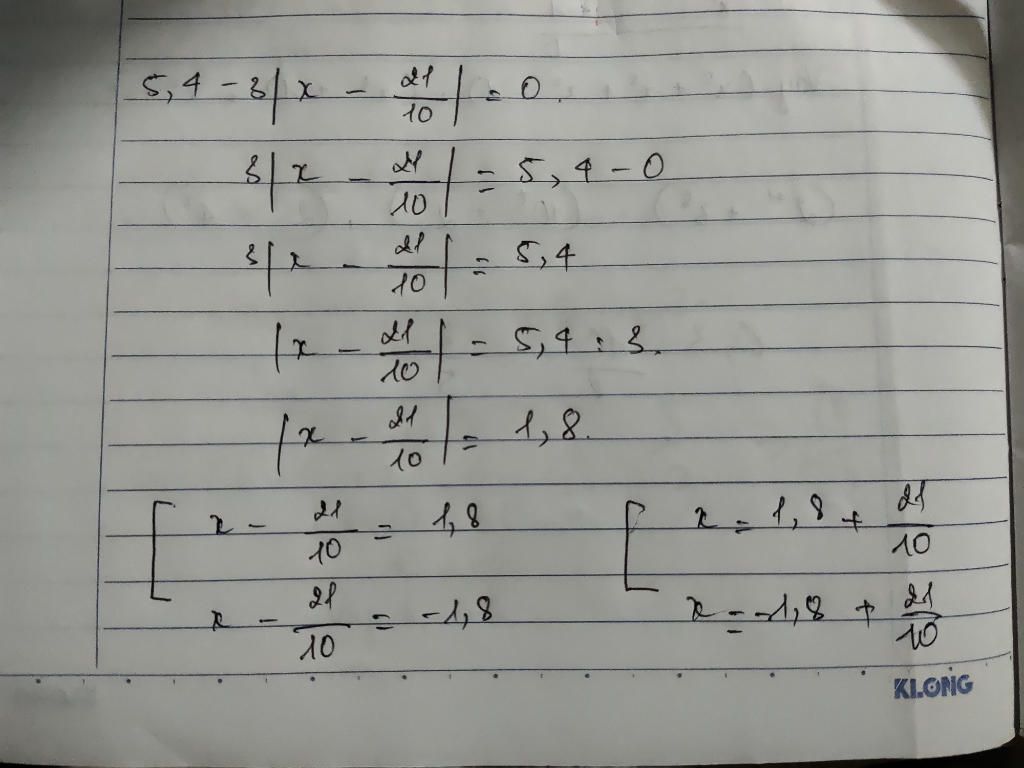 5,4 - 3|x - 21/10| = 0.
3|x - 21/10| = 5,4 - 0
3|x - 21/10| = 5,4
|x - 21/10| = 5,4 : 3.
|x - 21/10| = 1,8.
[ x - 21/10 = 1,8 [ x = 1,8 + 21/10
x - 21/10 = -1,8 x = -1,8 + 21/10
KLONG